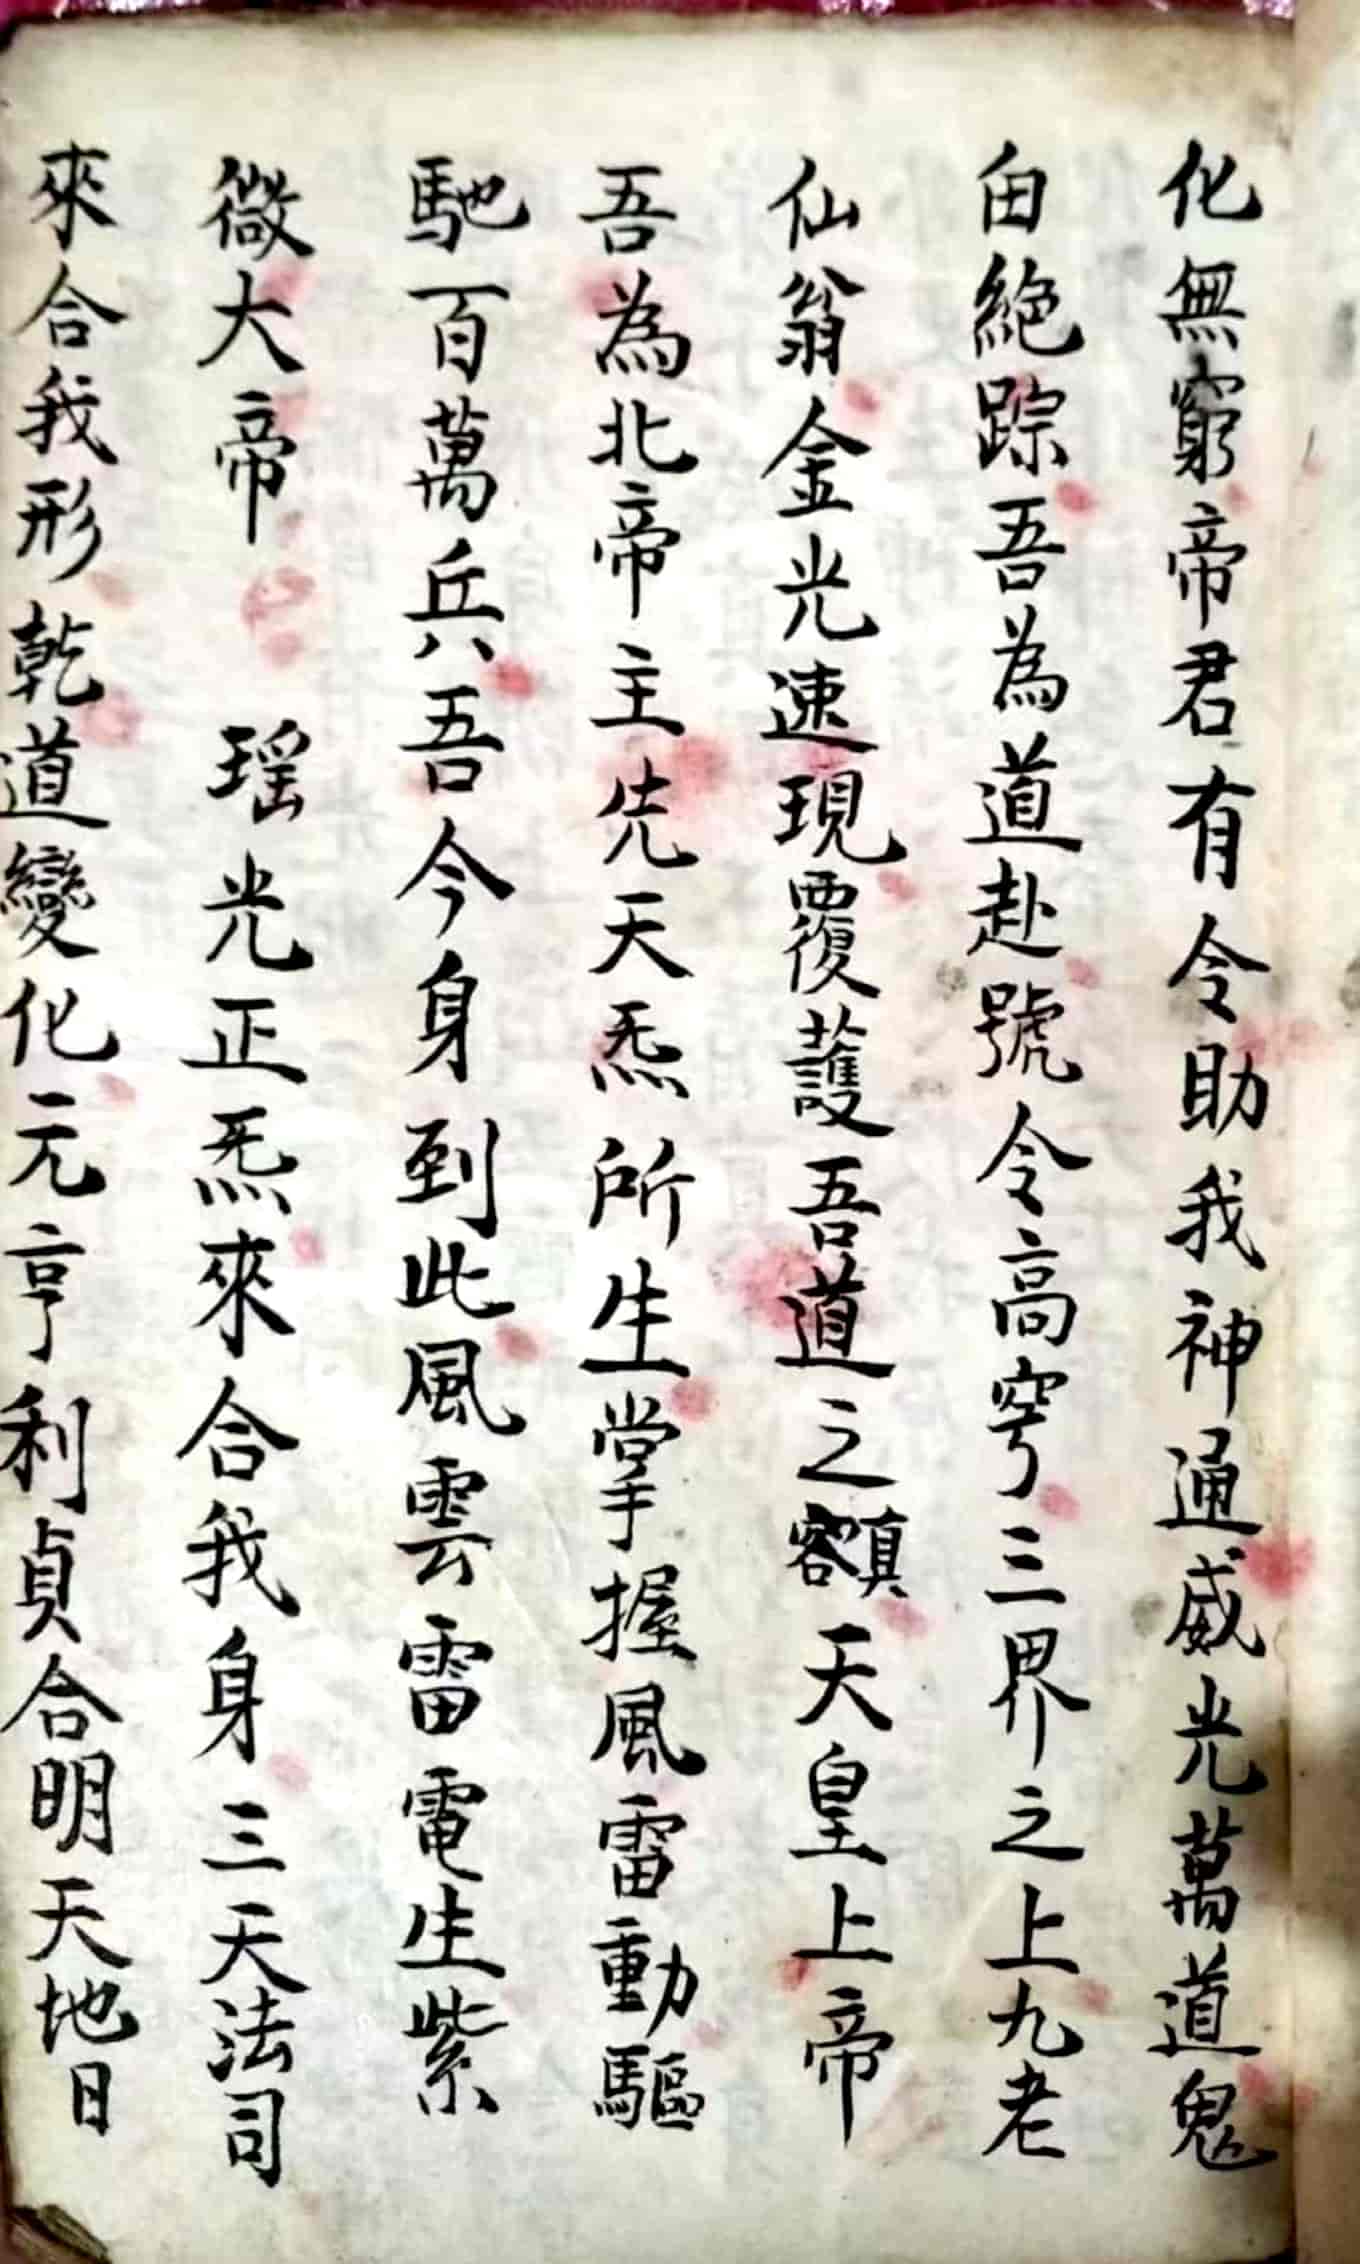 化無窮帝君有令助我神通威光萬道鬼
田絕踪吾為道赴號令高穹三界之上九老
仙翁金光速現覆護吾道之額真天皇上帝
吾為北帝主先天炁所生掌握風雷動驅
馳百萬兵吾今身到此風雲雷電生紫
微大帝 瑶光正炁來合我身三天法司
來合我形乾道變化元亨利貞合明天地日